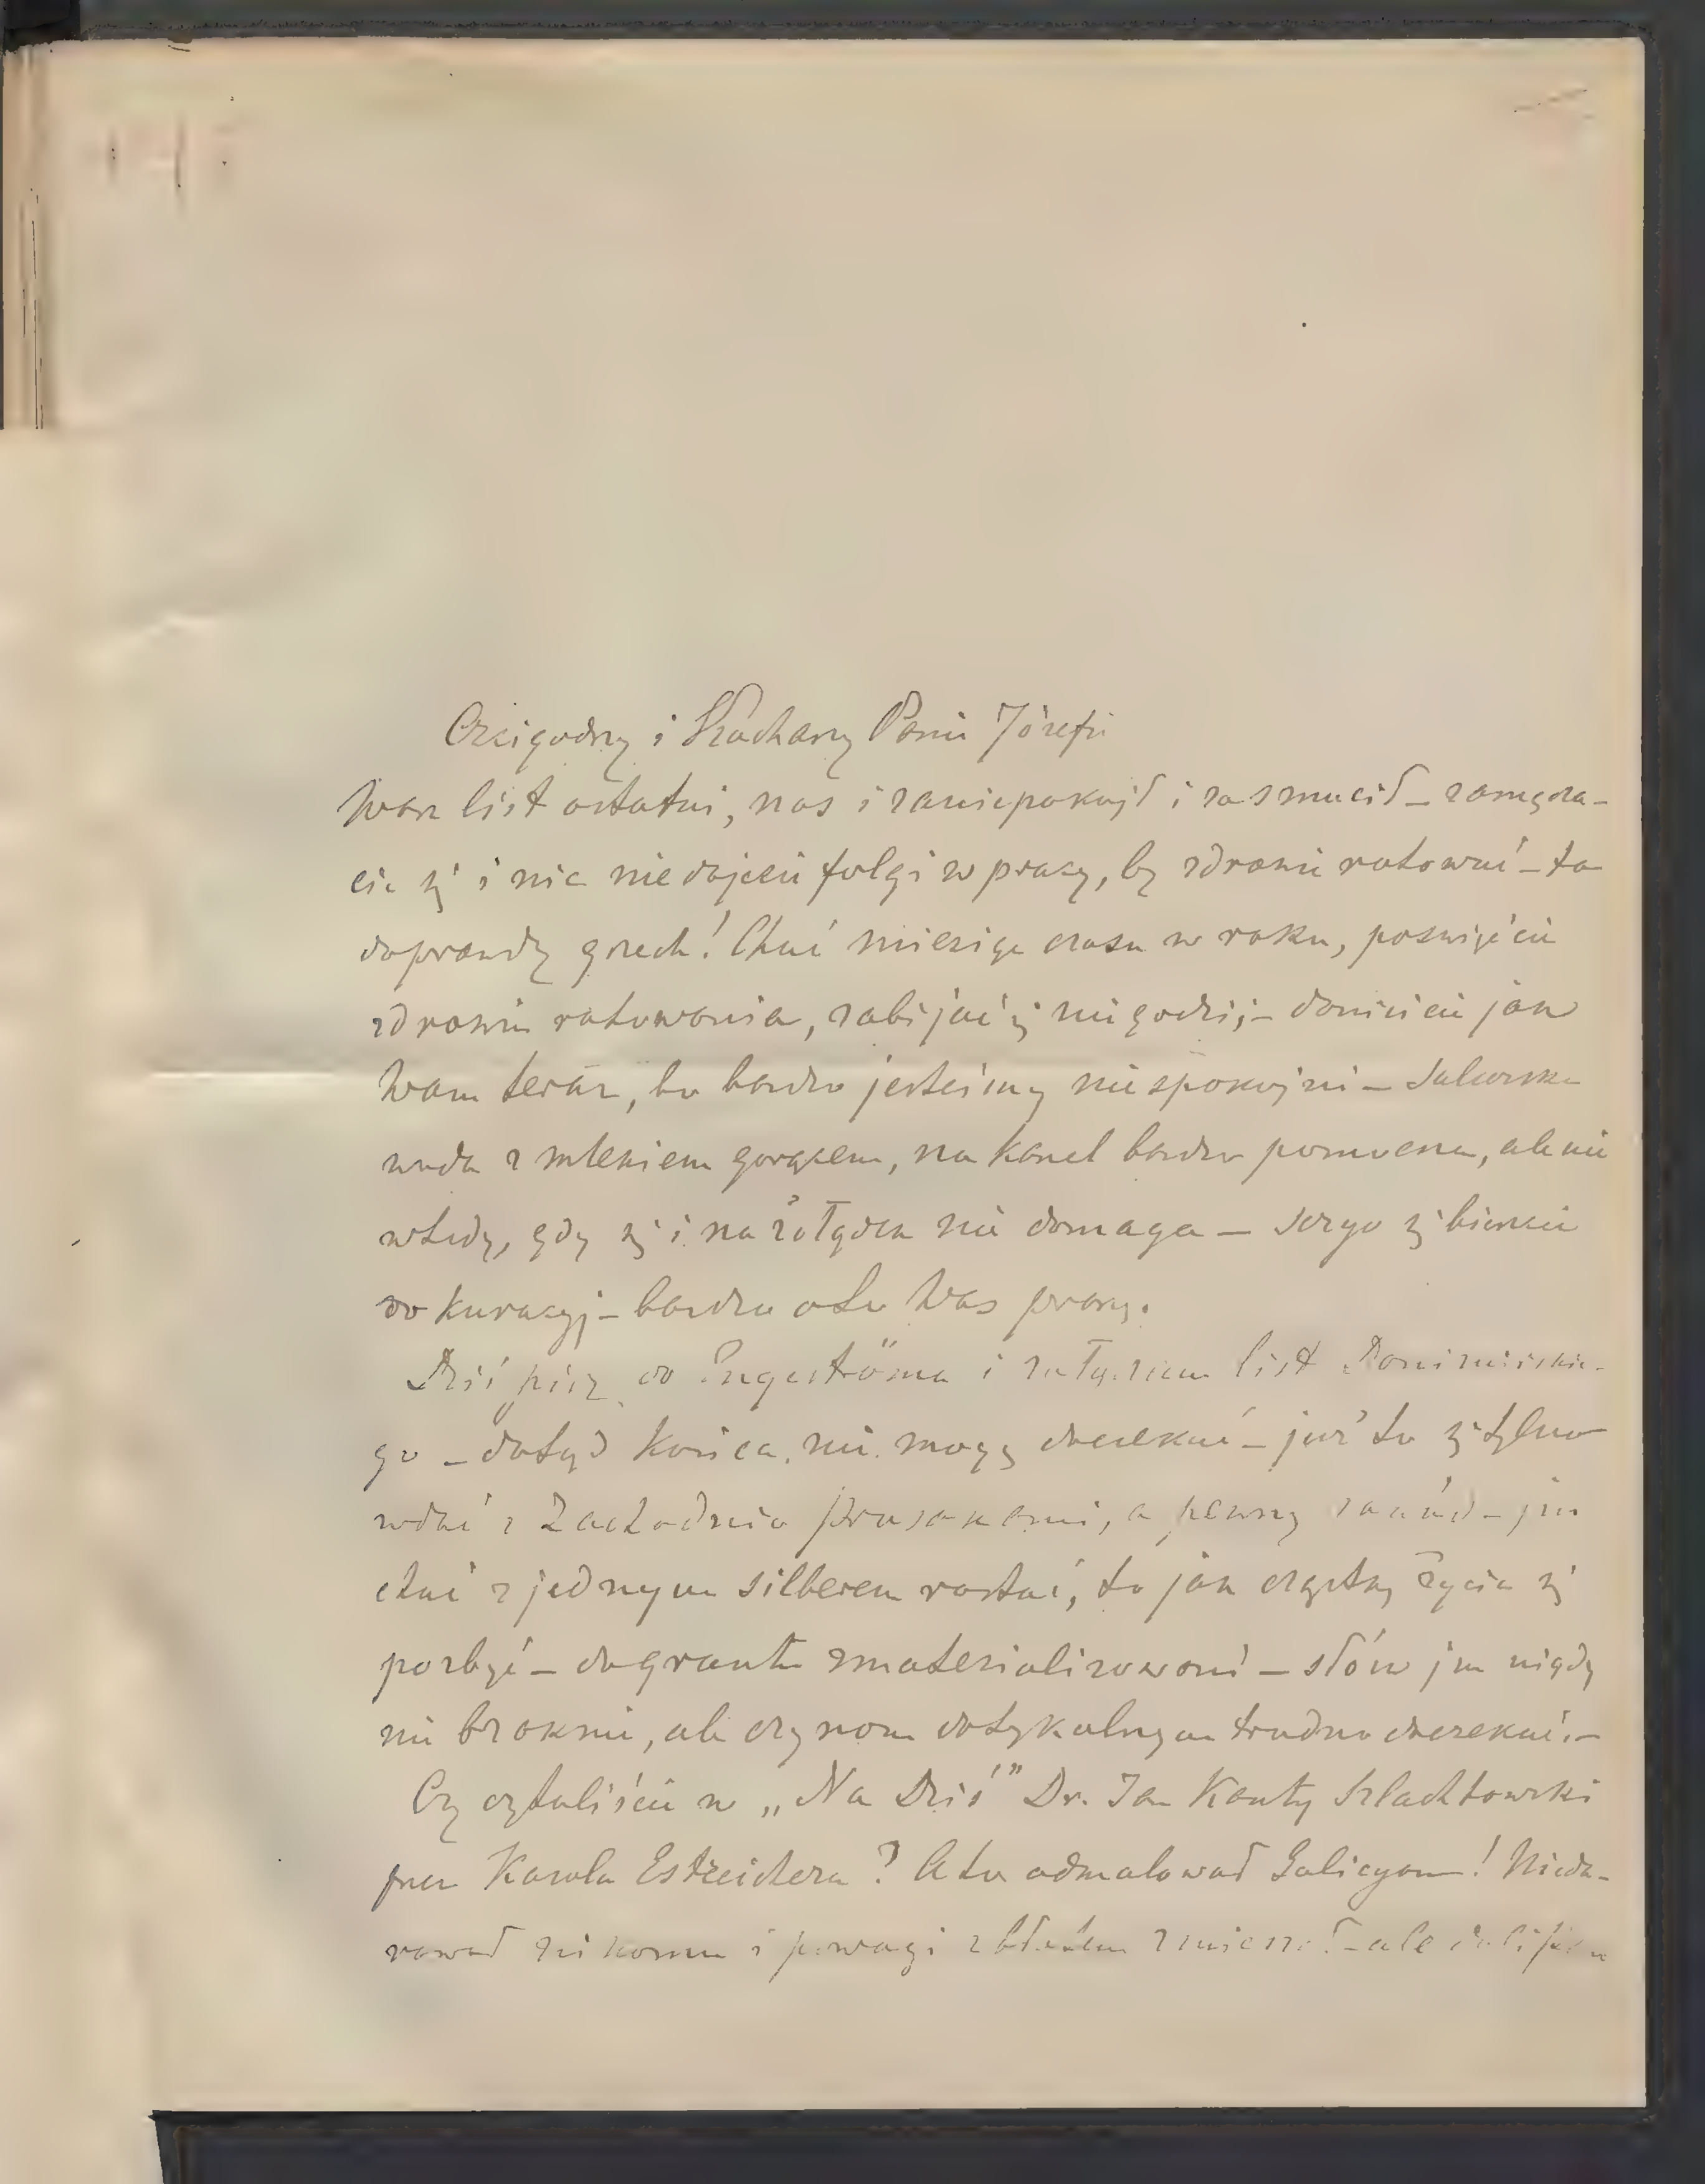 Czcigodny i Kochany Panie Józefie
Wasz list ostatni, nas i zaniepokojił i zasmucił – zamęcza-
cie się i nic nie dajecie folgi w pracy, by zdrowie ratować – to
doprawdy grzech! Choć miesiąc czasu w roku, poświęćcie
zdrowiu ratowania, zabijać się nie godzi; – donieście jak
Wam teraz, bo bardzo jesteśmy niespokojni – Selcerska
woda z mlekiem gorącem, na kaszel bardzo pomocna, ale nie
wtedy, gdy się i na żołądek nie domaga – szczyo się bierzcie
do kuracyj – bardzo o to Was proszę.
Dziś piszę do Engeströma i załączam list Donimirskie-
go – dotąd końca nie mogę doczekać – już to się tylko
wdać z Zachodnio prusakami, a pewny zawód – im
choć z jednym silberem rostać, to jak cząstkę życia się
pozbyć – do gruntu zmaterializowani – słów im nigdy
nie braknie, ale czynom dotykalnym trudno doczekać. –
Czy czytaliście w „Na Dziś” Dr. Jan Kanty Szlachtowski
przez Karola Estreichera? A to odmalował Galicyom! Nieda-
rował nikomu i powagi z błotem zmieszał – ale